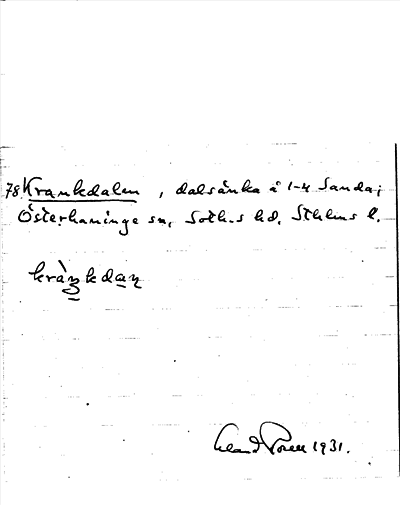 78. Krankdalen, dalsänka å 1-4 Sanda;
Österhaninge sn, Soth-s hd, Sthlms l.
kràŋkdaņ
1931.